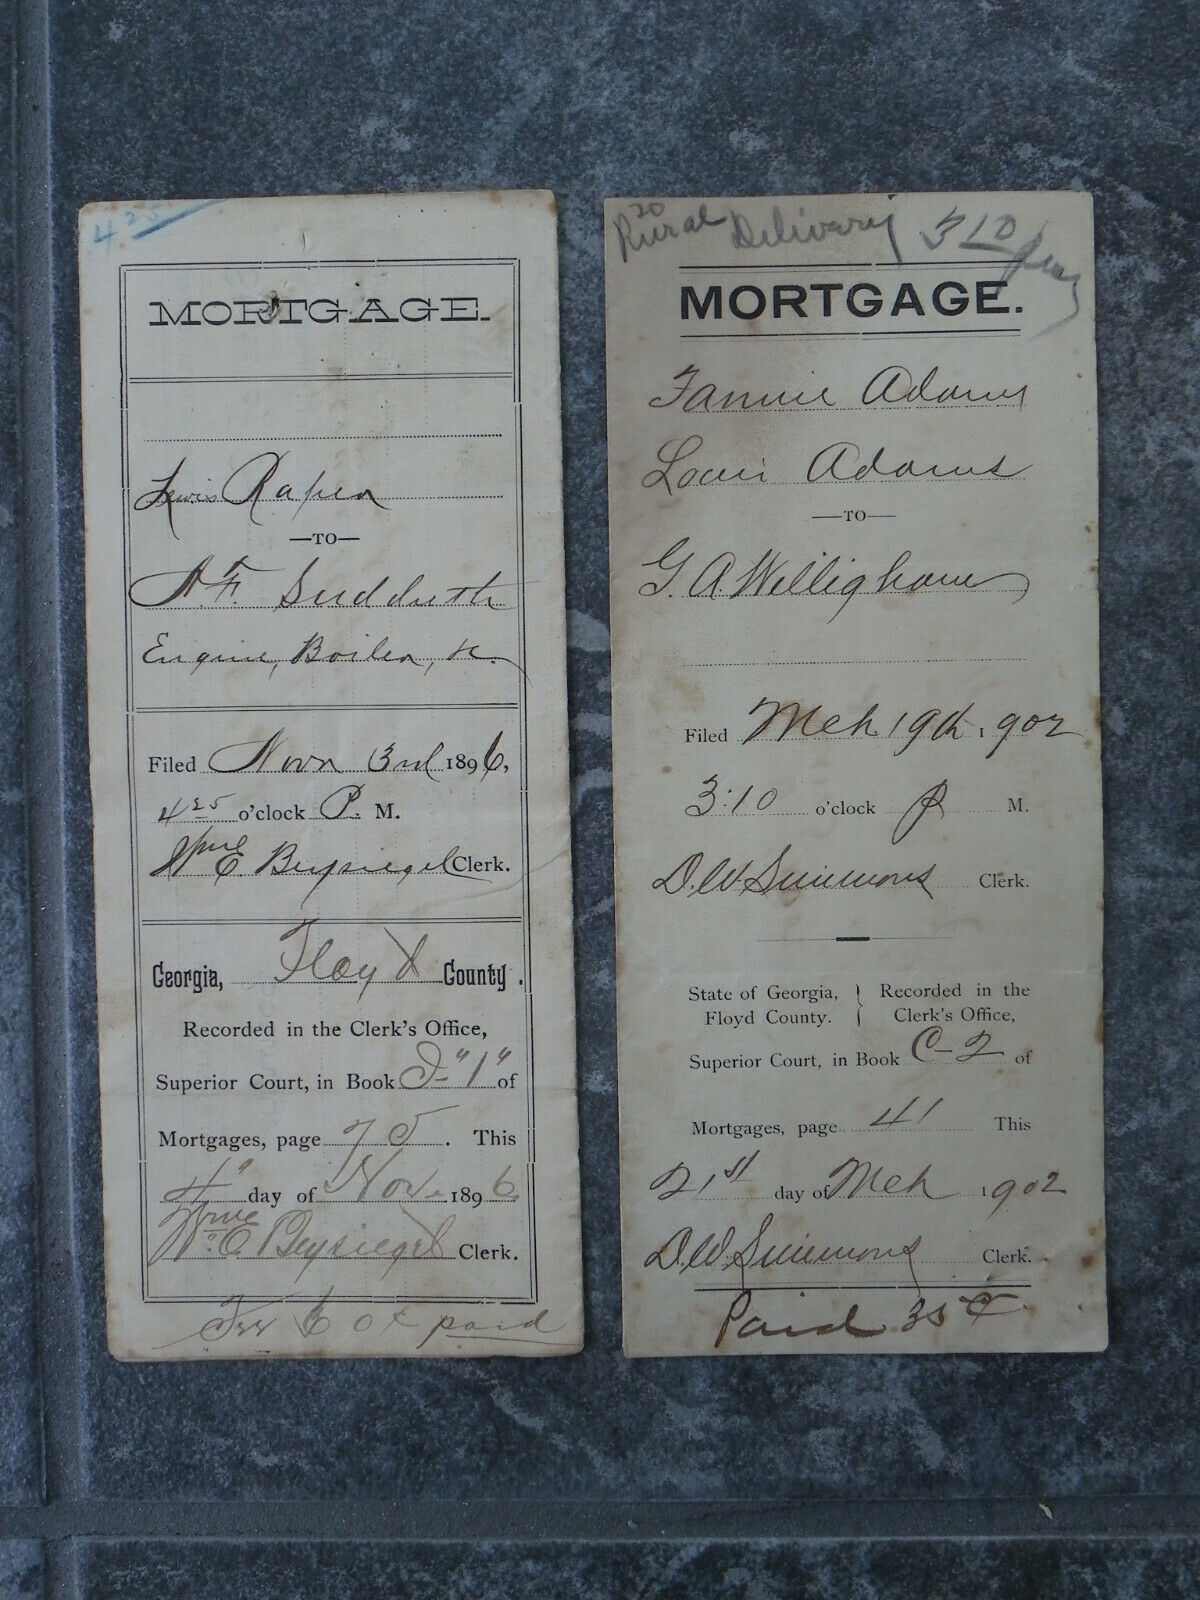 425
MORTGAGE.
Lewis Raper
—TO—
A. F. Sudduth
Engine, Boiler, &c.
Filed Novr 3rd 1896,
4 25 o'clock P. M.
Wm E. Beysiegel Clerk.
Georgia, Floyd County.
Recorded in the Clerk's Office,
Superior Court, in Book "1" of
Mortgages, page 75. This
4" day of Nov. 1896
Wm E. Beysiegel Clerk.
Fee 60¢ paid
20
Rural Delivery 310
MORTGAGE.
Fannie Adams
Adams
—TO—
G. A. Willigham
Filed Mch 19th 1902
3:10 o'clock P M.
D. W. Simmons Clerk.
State of Georgia, } Recorded in the
Floyd County. } Clerk's Office,
Superior Court, in Book C-2 of
Mortgages, page 41 This
21st day of Mch 1902
D. W. Simmons Clerk.
Paid 35¢